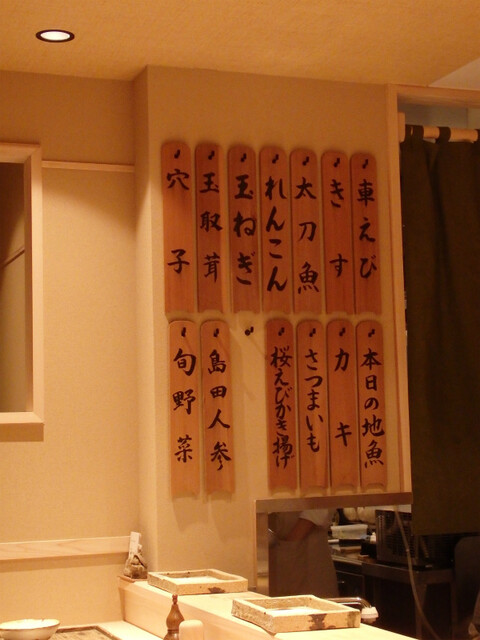 車えび
きす
太刀魚
れんこん
玉ねぎ
玉取茸
穴子
本日の地魚
カキ
さつまいも
桜えびかき揚げ
島田人参
旬野菜